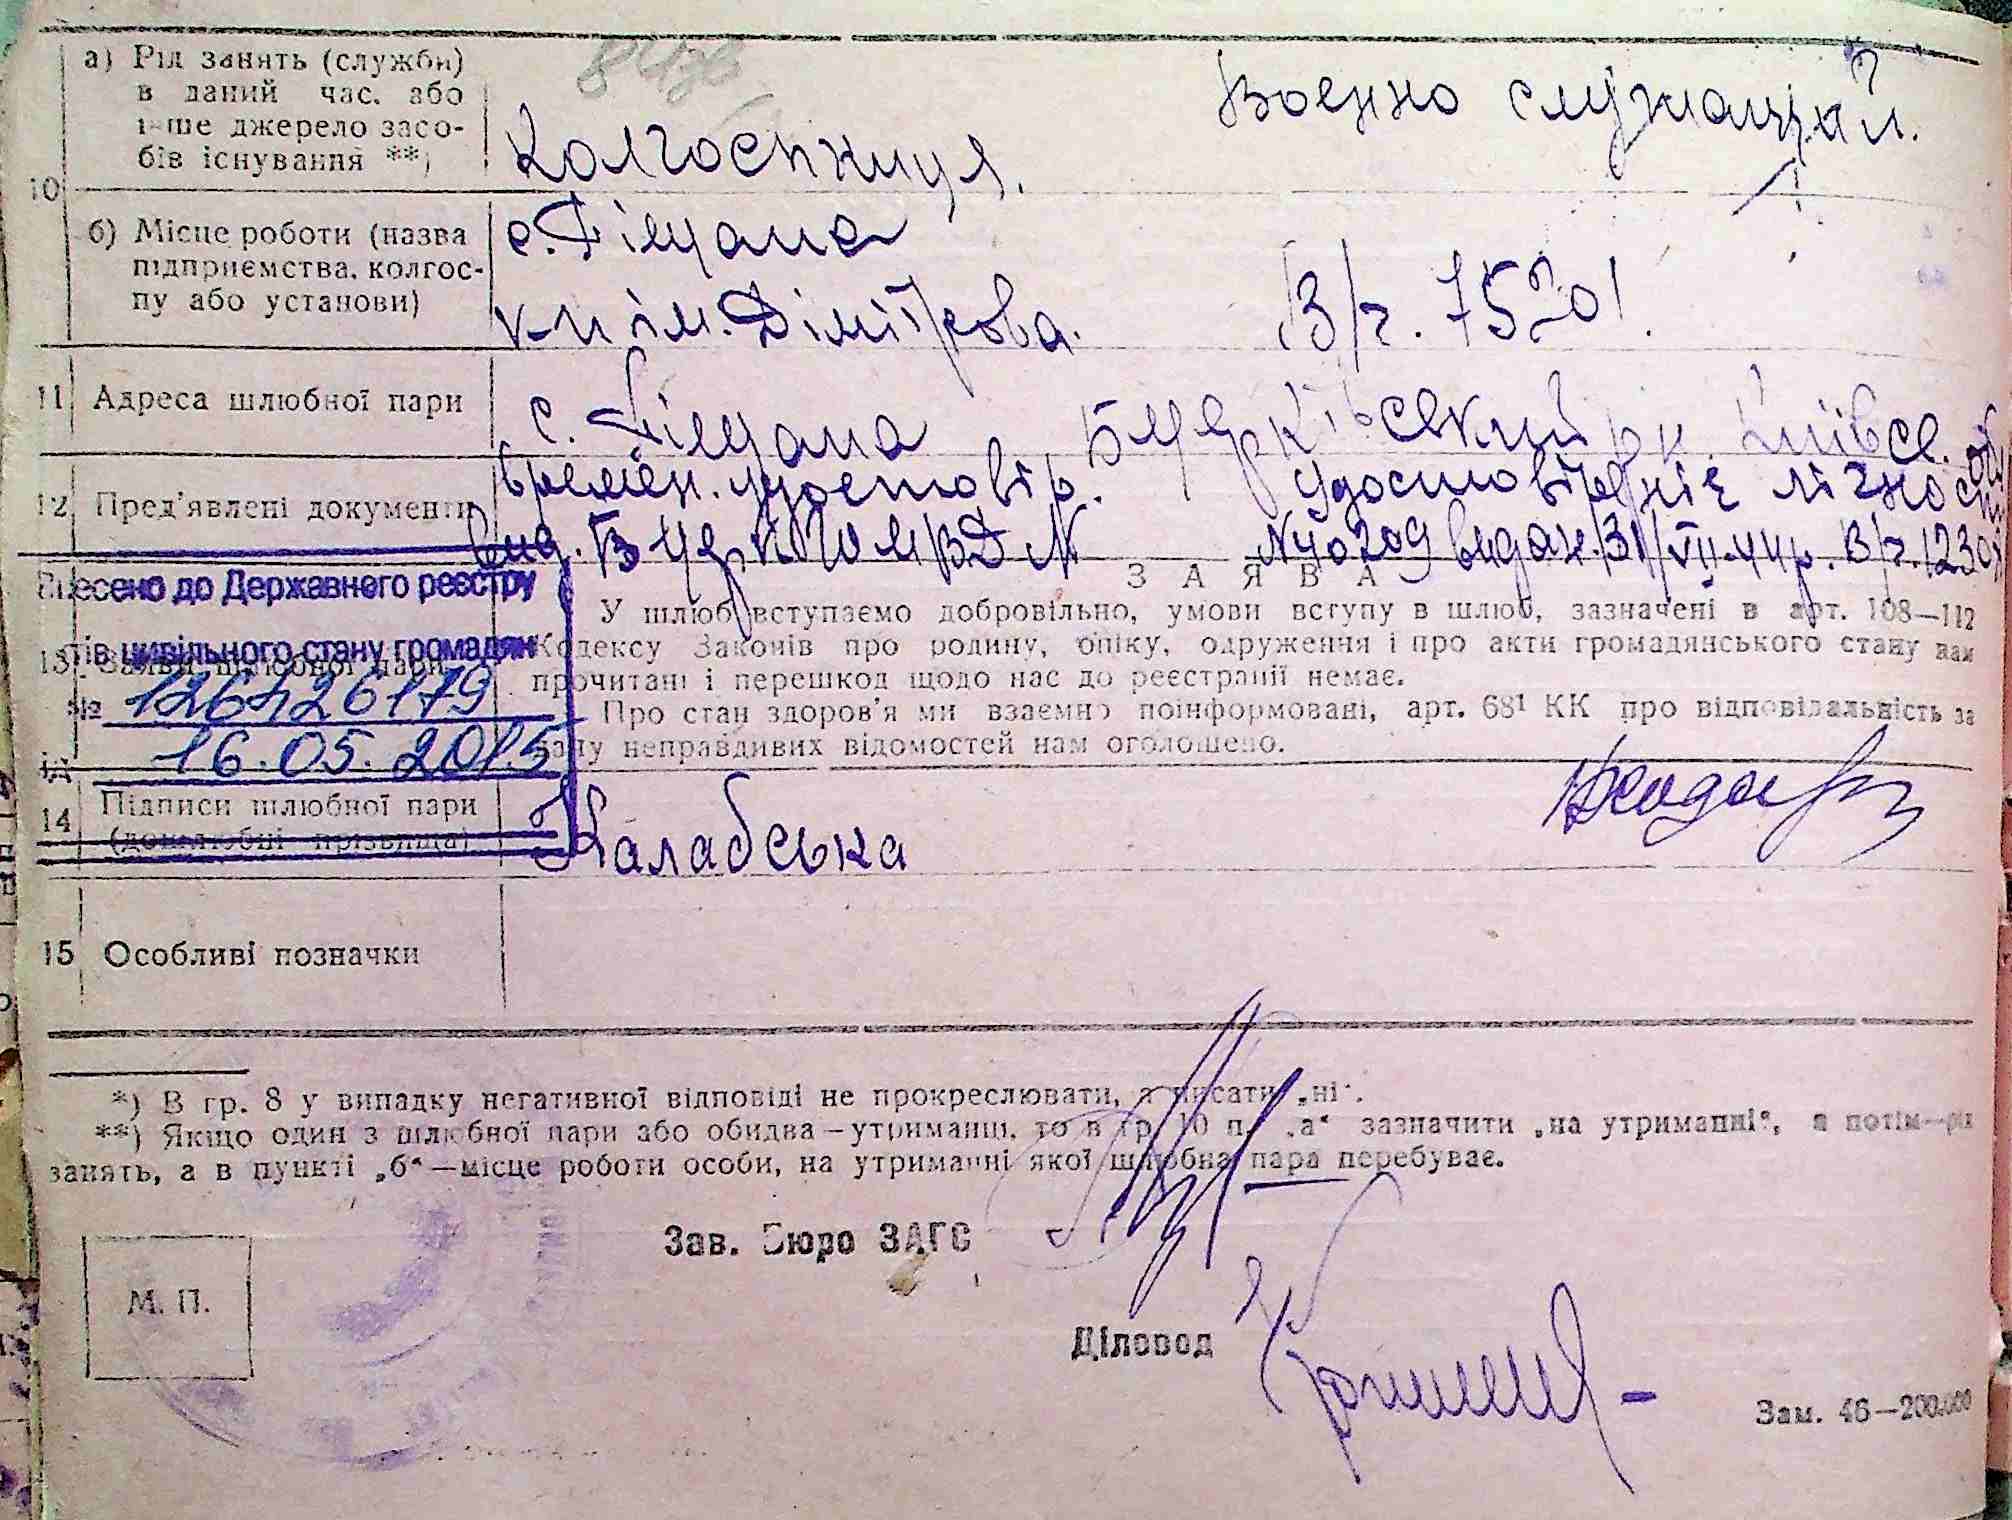 10
а) Рід занять (служби)
в даний час, або
інше джерело засо-
бів існування **)
Колгоспниця.
Военно служащий.
б) Місце роботи (назва
підприємства, колгос-
пу або установи)
с.
к-п ім. Дімітрова.
В/ч. 75201.
11 Адреса шлюбної пари
с.
12 Пред'явлені документи
времен. удостовір.
Удостовірєніє лічності
№ 40209 видан. 31/VII-44р. В/ч.
З А Я В А
У шлюб вступаємо добровільно, умови вступу в шлюб, зазначені в арт. 108—112
Кодексу Законів про родину, опіку, одруження і про акти громадянського стану нам
прочитані і перешкод щодо нас до реєстрації немає.
Про стан здоров'я ми взаємно поінформовані, арт. 68¹ КК про відповідальність за
дачу неправдивих відомостей нам оголошено.
13 Заяви шлюбної пари
Внесено до Державного реєстру
актів цивільного стану громадян
№ 126426179
від 16.05.2015
14 Підписи шлюбної пари
(дошлюбні прізвища)
Калабська
15 Особливі позначки
*) В гр. 8 у випадку негативної відповіді не прокреслювати, а писати „ні".
**) Якщо один з шлюбної пари або обидва—утриманці, то в гр. 10 п. „а" зазначити „на утриманні", а потім—рід
занять, а в пункті „б"—місце роботи особи, на утриманні якої шлюбна пара перебуває.
Зав. Бюро ЗАГС
М. П.
Діловод
Зам. 46—200.000